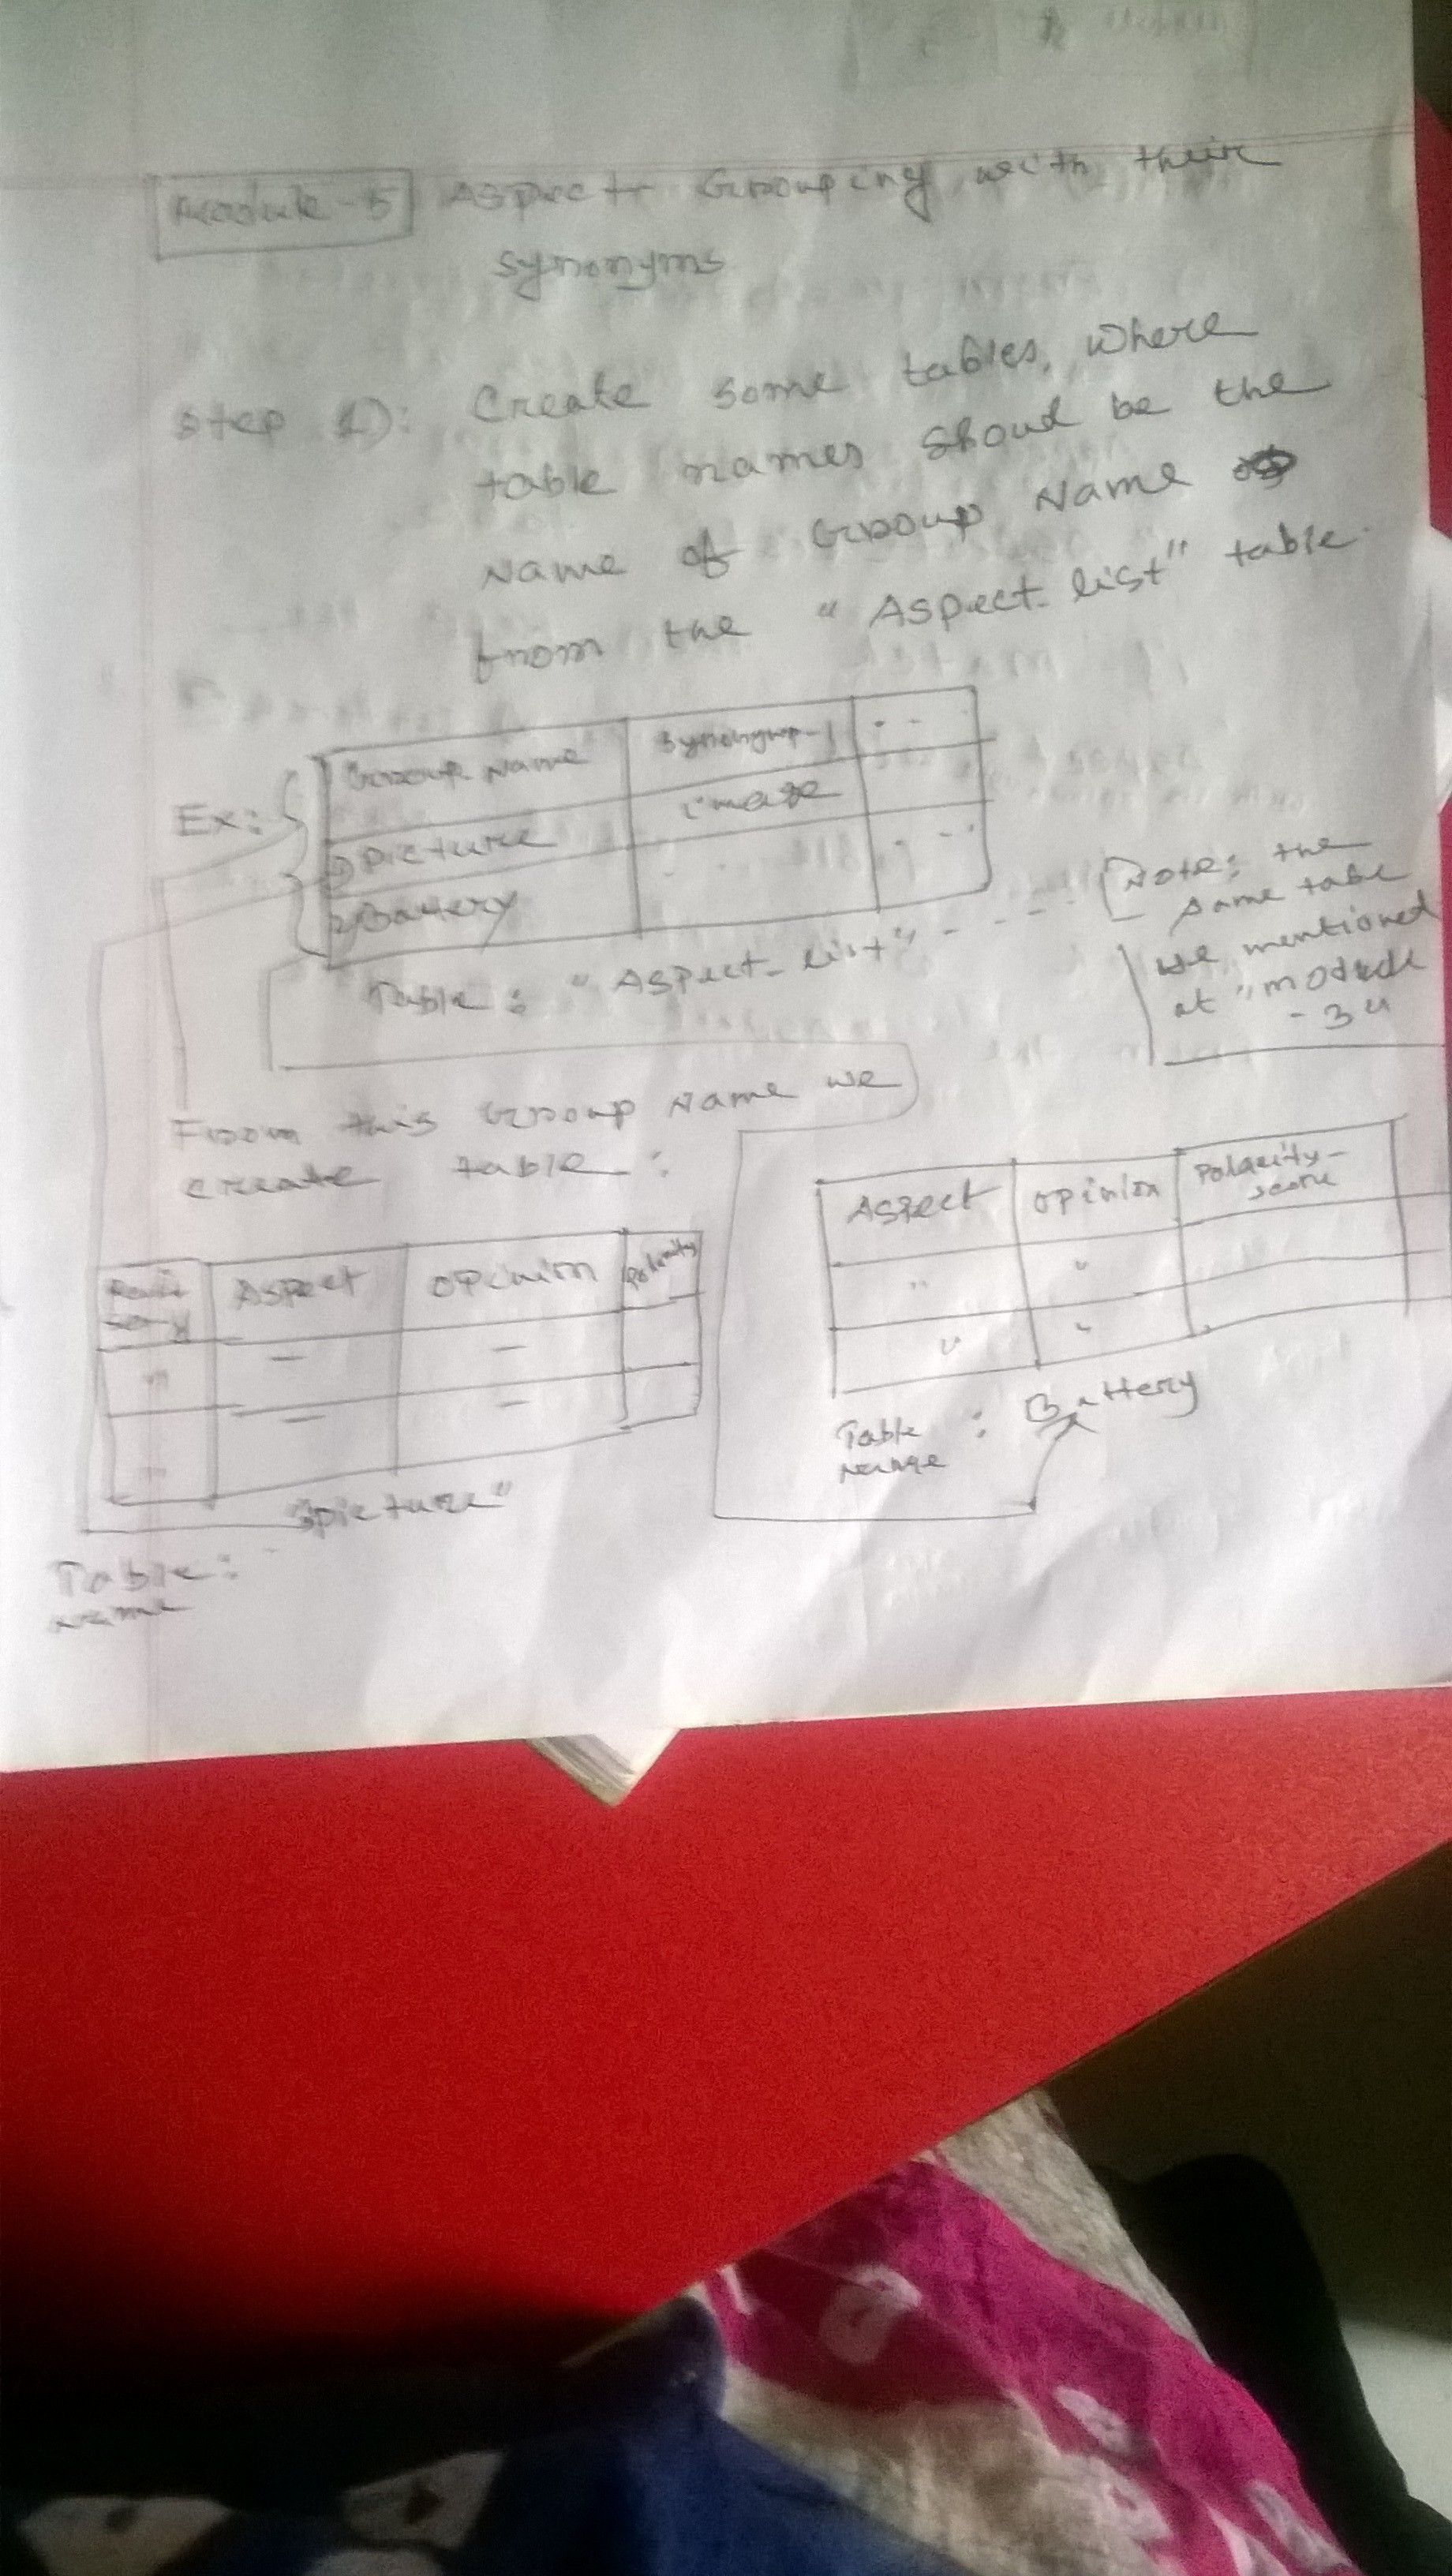 Module-5 Aspect Grouping with their
synonyms
Step 1): Create some tables, Where
table names shoud be the
Name of Group Name
from the "Aspect_list" table.
Ex:
Group Name synonym-1 . .
1) Picture image
2) Battery . . . . .
Table: "Aspect_list" - - - -
Note: the
same table
we mentioned
at "module
-3"
From this Group Name we
create table:
Aspect opinion Polarity
" "
— —
— —
Table: "picture"
name
Aspect opinion Polarity-
score
" "
" "
Table : Battery
name